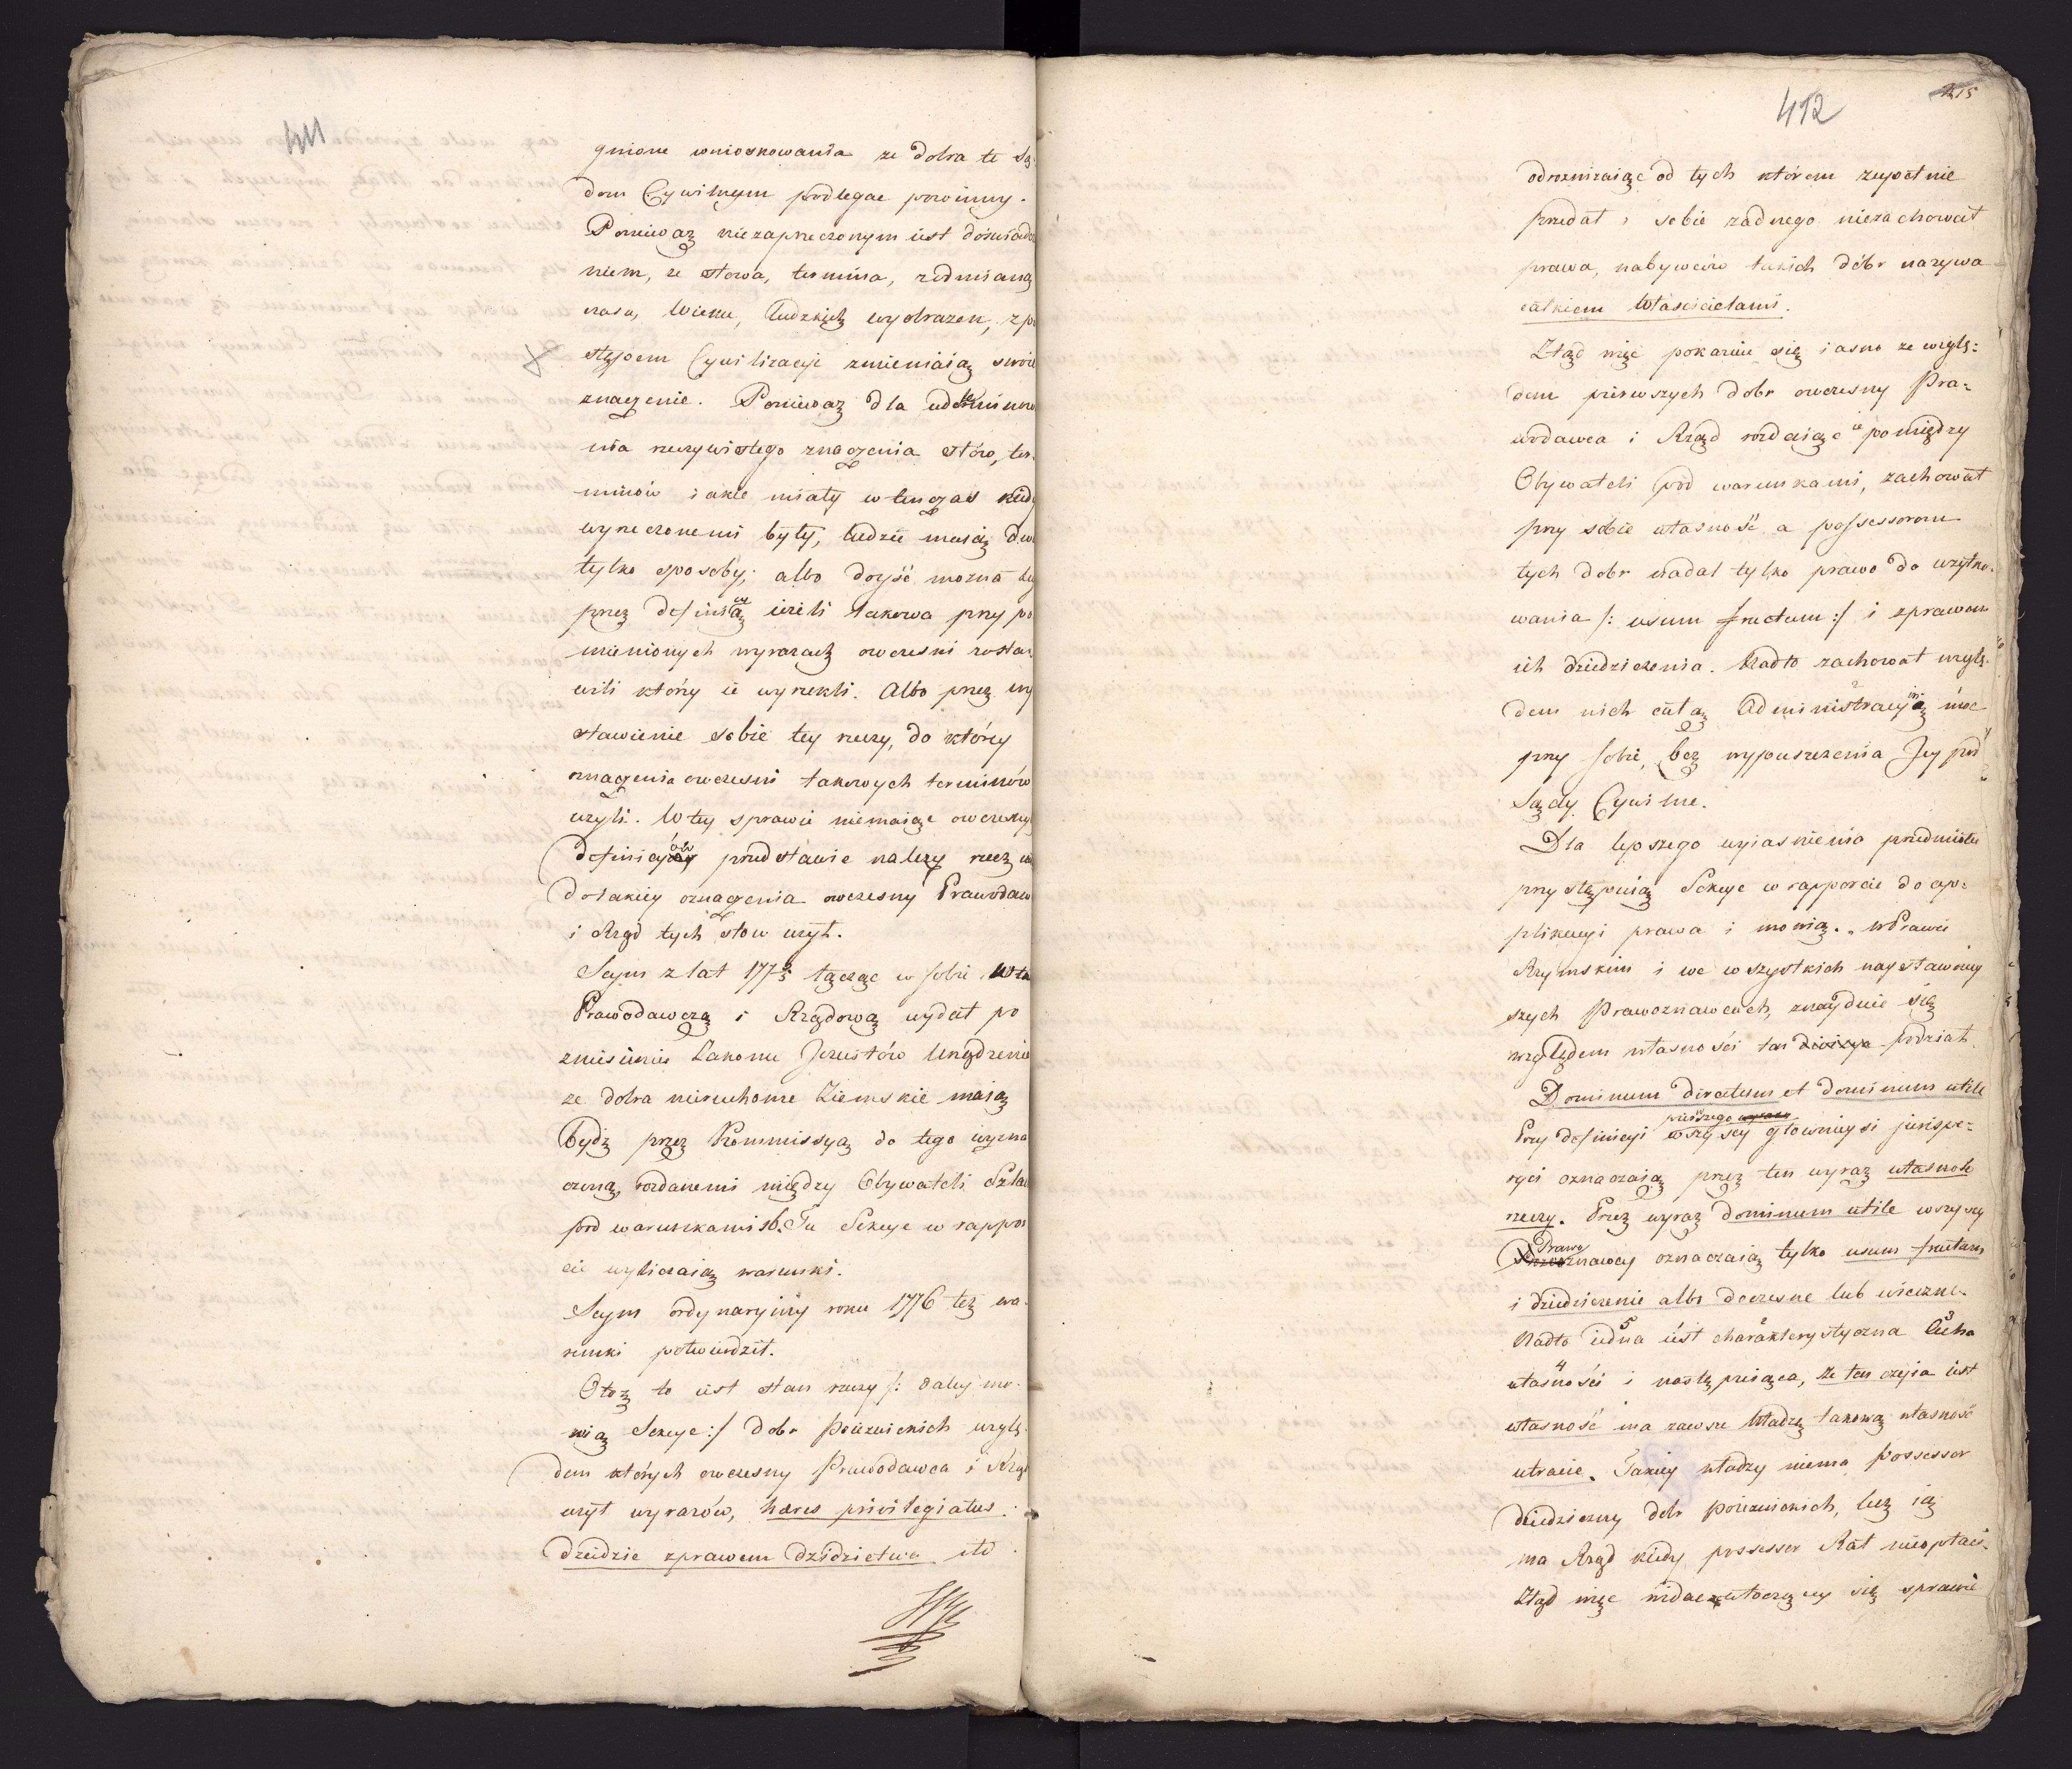 411
gnione wnioskowania ze dobra te Są
dom Cywilnym podlegać powinny.
Ponieważ niezaprzeczonym iest doswiadcz
niem, ze słowa, termina, z odmianą
czasu, Wieku, ludzkich wyobrazen, z po
stępem Cywilizacyi zmieniaią swoie
znaczenie. Ponieważ dla udeterminowa
nia rzeczywistego znaczenia słów, ter-
minów iakie miały wtenczas kiedy
wyrzeczonemi były, ludzie maią dwa
tylko sposoby; albo doyść można
przez definicyą ieżeli takowa przy po
mienionych wyrazach owczesni zosta-
wili który ie wyrzekli. Albo przez wy
stawienie sobie tey rzeczy, do który
oznaczenia owczesni takowych terminów
użyli. W tey sprawie niemaiąc owczesnych
definicyów przedstawic nalezy rzecz
do takiey oznaczenia owczesny Prawodaw
i Rząd tych słow użył.
Seym z lat 1773/5 łącząc w sobie Wła
Prawodawczą i Rządową wydał po
zniesieniu Zakonu Jezuitów Urządzenie
ze dobra nieruchome Ziemskie maią
bydź przez Kommissyą do tego wyzna
czoną, rozdanemi między Obywateli Szla
pod warunkami sb. Tu Sekcye w rappor
cie wyliczaią warunki.
Seym ordynaryiny roku 1776 też wa-
runki potwierdził.
Otoż to iest stan rzeczy /: daley mó-
wią Sekcye :/ dobr Poiezuickich wzglę-
dem których owczesny Prawodawca i Rząd
użył wyrazów, hæres privilegiatus.
dziedzic z prawem dzidzictwa itd.
412
215
odrozniaiąc od tych którem zupełnie
przedał i sobie zadnego niezachował
prawa, nabywców takich dóbr nazywa
całkiem Właścicielami.
Ztąd więc pokazuie się iasno ze wzglę-
dem pierwszych dobr owczesny Pra-
wodawca i Rząd rozdaiąc ie pomiędzy
Obywateli pod warunkami, zachował
przy sobie własność a possessorom
tych dobr nadał tylko prawo do użytko-
wania /: usum fructum :/ i z prawem
ich dziedziczenia. Nadto zachował wzglę-
dem nich całą Administracyią
przy sobie, bez wypuszczenia Jey pod
Sądy Cywilne.
Dla lepszego wyiasnienia przedmiotu
przystępuią Sekcye w rapporcie do ap-
plikacyi prawa i mowią. „ w Prawie
Rzymskim i we wszystkich naysławniey
szych Prawoznawcach, znayduie się
względem własności ten divisya podział
Dominum directum et dominum utile
pierwszego wyrazu
Przy definicyi wszyscy głowniysi jurispe-
ryci oznaczaią przez ten wyraz własność
rzeczy. Przez wyraz dominum utile wszyscy
Prawo
znawcy oznaczaią tylko usum fructum
i dziedziczenie albo doczesne lub wieczne.
Nadto iedna iest charakterystyczna Cecha
własności i następuiąca, że ten czyia iest
własność ma zawsze Władzę takową własność
utracic. Takiey władzy niema Possessor
dziedziczny dobr Poiezuickich, lecz ią
ma Rząd kiedy possessor Rat nieopłaci.
Ztąd więc widac w toczącey się sprawie